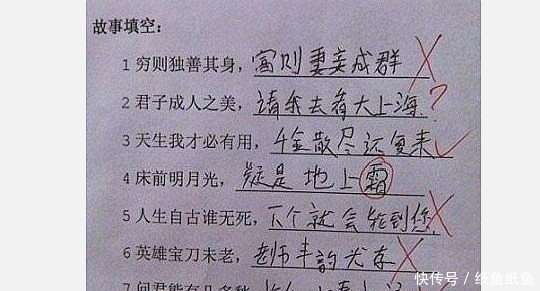 故事填空：
1 穷则独善其身，富则妻妾成群
2 君子成人之美，请我去看大上海？
3 天生我才必有用，千金散尽还复来
4 床前明月光，疑是地上霜
5 人生自古谁无死，下个就会轮到您
6 英雄宝刀未老，老师丰韵犹存
7 问君能有几多愁
快传号 / 纸鱼纸鱼